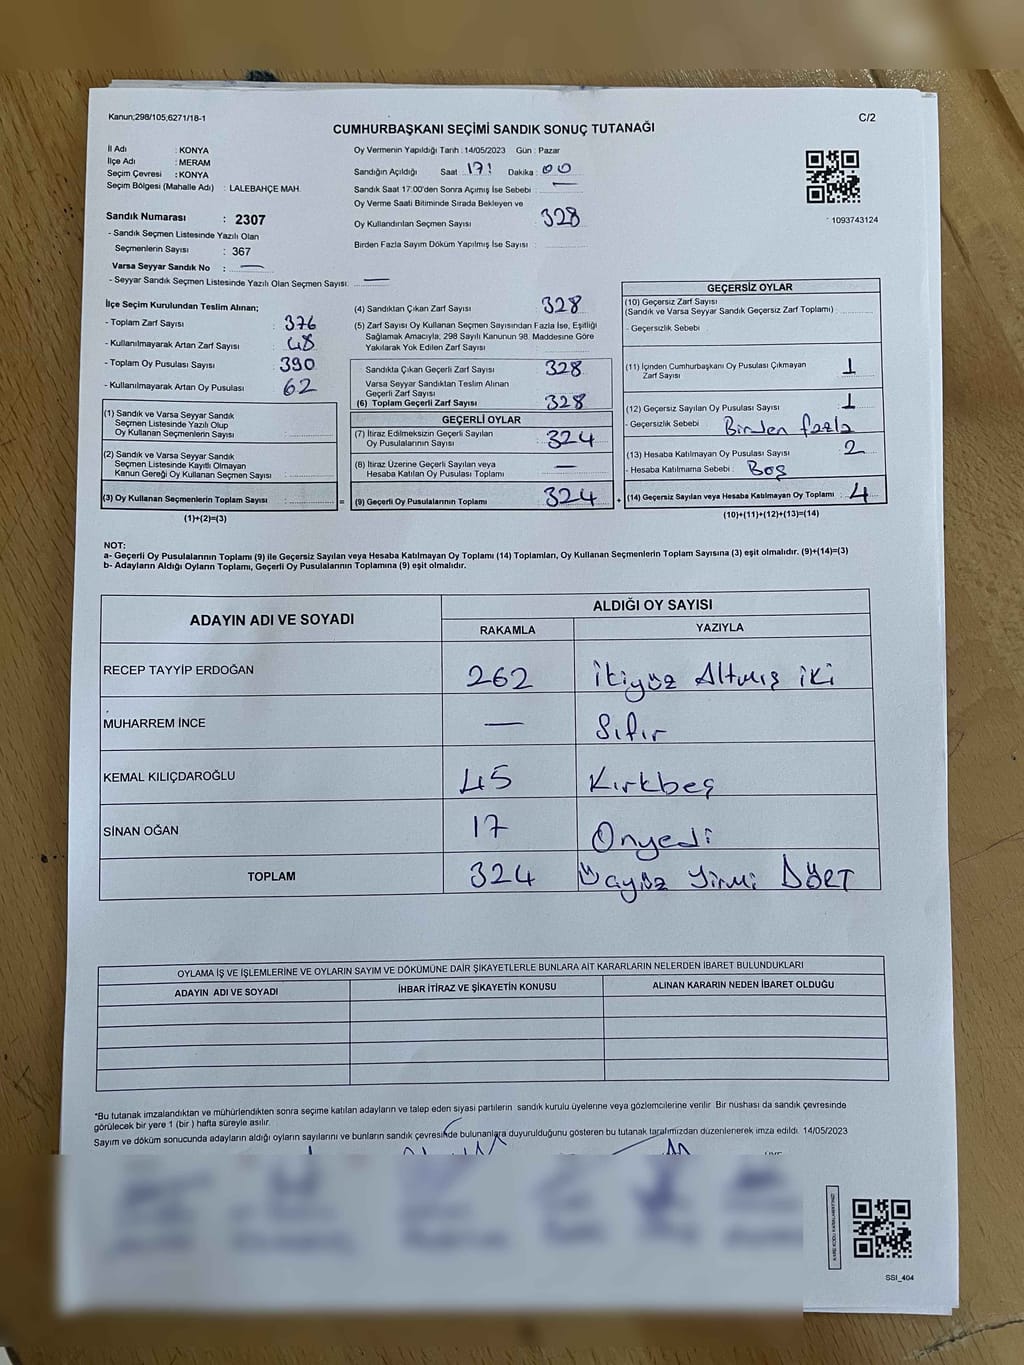 Kanun;298/105;6271/18-1
C/2
CUMHURBAŞKANI SEÇİMİ SANDIK SONUÇ TUTANAĞI
İl Adı : KONYA
İlçe Adı : MERAM
Seçim Çevresi : KONYA
Seçim Bölgesi (Mahalle Adı) : LALEBAHÇE MAH.
Sandık Numarası : 2307
- Sandık Seçmen Listesinde Yazılı Olan
Seçmenlerin Sayısı : 367
Varsa Seyyar Sandık No : —
- Seyyar Sandık Seçmen Listesinde Yazılı Olan Seçmen Sayısı: —
Oy Vermenin Yapıldığı Tarih : 14/05/2023 Gün : Pazar
Sandığın Açıldığı Saat 17: Dakika : 00
Sandık Saat 17:00'den Sonra Açımış İse Sebebi : —
Oy Verme Saati Bitiminde Sırada Bekleyen ve
Oy Kullandırılan Seçmen Sayısı : 328
Birden Fazla Sayım Döküm Yapılmış İse Sayısı :
1093743124
İlçe Seçim Kurulundan Teslim Alınan;
- Toplam Zarf Sayısı : 376
- Kullanılmayarak Artan Zarf Sayısı : 48
- Toplam Oy Pusulası Sayısı : 390
- Kullanılmayarak Artan Oy Pusulası : 62
(1) Sandık ve Varsa Seyyar Sandık
Seçmen Listesinde Yazılı Olup
Oy Kullanan Seçmenlerin Sayısı :
(2) Sandık ve Varsa Seyyar Sandık
Seçmen Listesinde Kayıtlı Olmayan
Kanun Gereği Oy Kullanan Seçmen Sayısı :
(3) Oy Kullanan Seçmenlerin Toplam Sayısı : =
(1)+(2)=(3)
(4) Sandıktan Çıkan Zarf Sayısı : 328
(5) Zarf Sayısı Oy Kullanan Seçmen Sayısından Fazla İse, Eşitliği
Sağlamak Amacıyla; 298 Sayılı Kanunun 98. Maddesine Göre
Yakılarak Yok Edilen Zarf Sayısı :
Sandıkta Çıkan Geçerli Zarf Sayısı : 328
Varsa Seyyar Sandıktan Teslim Alınan
Geçerli Zarf Sayısı :
(6) Toplam Geçerli Zarf Sayısı : 328
GEÇERLİ OYLAR
(7) İtiraz Edilmeksizin Geçerli Sayılan
Oy Pusulalarının Sayısı : 324
(8) İtiraz Üzerine Geçerli Sayılan veya
Hesaba Katılan Oy Pusulası Toplamı : —
(9) Geçerli Oy Pusulalarının Toplamı : 324 +
GEÇERSİZ OYLAR
(10) Geçersiz Zarf Sayısı
(Sandık ve Varsa Seyyar Sandık Geçersiz Zarf Toplamı) :
- Geçersizlik Sebebi :
(11) İçinden Cumhurbaşkanı Oy Pusulası Çıkmayan
Zarf Sayısı : 1
(12) Geçersiz Sayılan Oy Pusulası Sayısı : 1
- Geçersizlik Sebebi : Birden fazla
(13) Hesaba Katılmayan Oy Pusulası Sayısı : 2
- Hesaba Katılmama Sebebi : Boş
(14) Geçersiz Sayılan veya Hesaba Katılmayan Oy Toplamı : 4
(10)+(11)+(12)+(13)=(14)
NOT:
a- Geçerli Oy Pusulalarının Toplamı (9) ile Geçersiz Sayılan veya Hesaba Katılmayan Oy Toplamı (14) Toplamları, Oy Kullanan Seçmenlerin Toplam Sayısına (3) eşit olmalıdır. (9)+(14)=(3)
b- Adayların Aldığı Oyların Toplamı, Geçerli Oy Pusulalarının Toplamına (9) eşit olmalıdır.
ADAYIN ADI VE SOYADI
ALDIĞI OY SAYISI
RAKAMLA YAZIYLA
RECEP TAYYİP ERDOĞAN 262 İkiyüz Altmış iki
MUHARREM İNCE — Sıfır
KEMAL KILIÇDAROĞLU 45 Kırkbeş
SİNAN OĞAN 17 Onyedi
TOPLAM 324 Üçyüz Yirmi DÖRT
OYLAMA İŞ VE İŞLEMLERİNE VE OYLARIN SAYIM VE DÖKÜMÜNE DAİR ŞİKAYETLERLE BUNLARA AİT KARARLARIN NELERDEN İBARET BULUNDUKLARI
ADAYIN ADI VE SOYADI İHBAR İTİRAZ VE ŞİKAYETİN KONUSU ALINAN KARARIN NEDEN İBARET OLDUĞU
*Bu tutanak imzalandıktan ve mühürlendikten sonra seçime katılan adayların ve talep eden siyasi partilerin sandık kurulu üyelerine veya gözlemcilerine verilir. Bir nüshası da sandık çevresinde
görülecek bir yere 1 (bir ) hafta süreyle asılır.
Sayım ve döküm sonucunda adayların aldığı oyların sayılarını ve bunların sandık çevresinde bulunanlara duyurulduğunu gösteren bu tutanak tarafımızdan düzenlenerek imza edildi. 14/05/2023
SSI_404